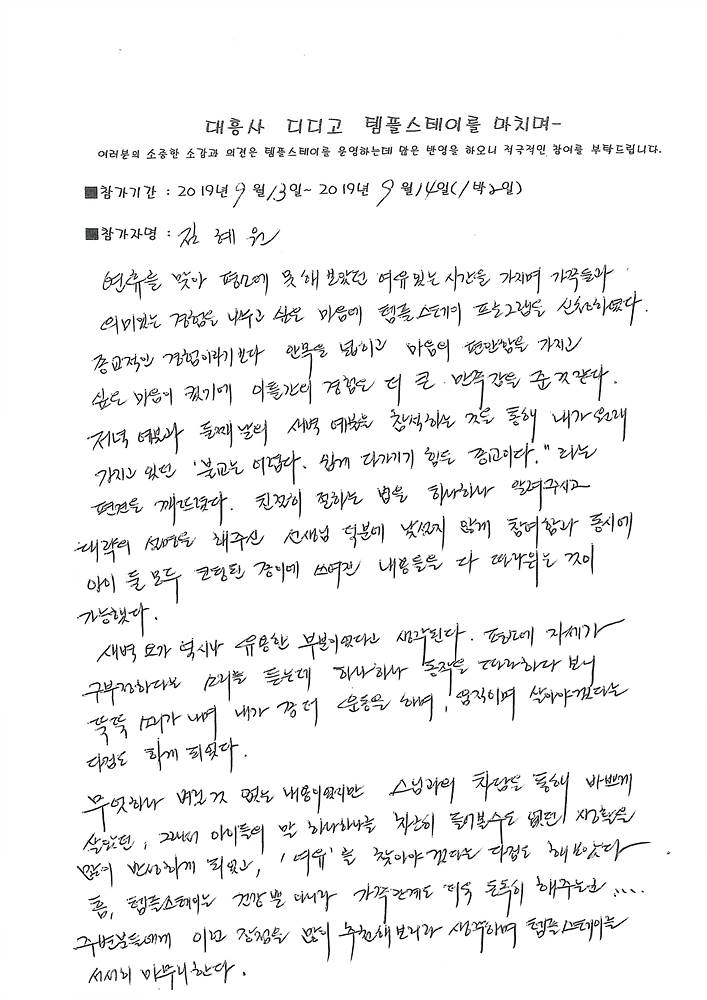 대흥사 디디고 템플스테이를 마치며-
여러분의 소중한 소감과 의견은 템플스테이를 운영하는데 많은 반영을 하오니 적극적인 참여를 부탁드립니다.
■참가기간 : 2019년 9월 13일~ 2019년 9월 14일(1박2일)
■참가자명 : 김 혜 원
연휴를 맞아 평소에 못해 보았던 여유있는 시간을 가지며 가족들과
의미있는 경험을 나누고 싶은 마음에 템플스테이 프로그램을 신청하였다.
종교적인 경험이라기 보다 안목을 넓히고 마음의 편안함을 가지고
싶은 마음이 컸기에 이틀간의 경험은 더 큰 만족감을 준 것 같다.
저녁 예불과 둘째날의 새벽 예불을 참석하는 것을 통해 내가 오래
가지고 있던 '불교는 어렵다. 쉽게 다가가기 힘든 종교이다." 라는
편견을 깨뜨렸다. 친절히 절하는 법을 하나하나 알려주시고
대략의 설명을 해주신 선생님 덕분에 낯설지 않게 참여함과 동시에
아이 둘 모두 코팅된 종이에 쓰여진 내용들을 다 따라읽는 것이
가능했다.
새벽 요가 역시나 유용한 부분이었다고 생각된다. 평소에 자세가
구부정하다는 소리를 듣는데 하나하나 동작을 따라하다 보니
뚝뚝 소리가 나며 내가 좀 더 운동을 하며, 움직이며 살아야겠다는
다짐도 하게 되었다.
무엇하나 버릴 것 없는 내용이었지만 스님과의 차담을 통해 바쁘게
살았던, 그래서 아이들의 말 하나하나를 차근히 들어볼수도 없었던 생활을
많이 반성하게 되었고, '여유'를 찾아야겠다는 다짐도 해보았다.
흠, 템플스테이는 건강 뿐 아니라 가족관계도 더욱 돈독히 해주는군.....
주변분들에게 이런 장점을 많이 추천해보리라 생각하며 템플스테이를
서서히 마무리한다.